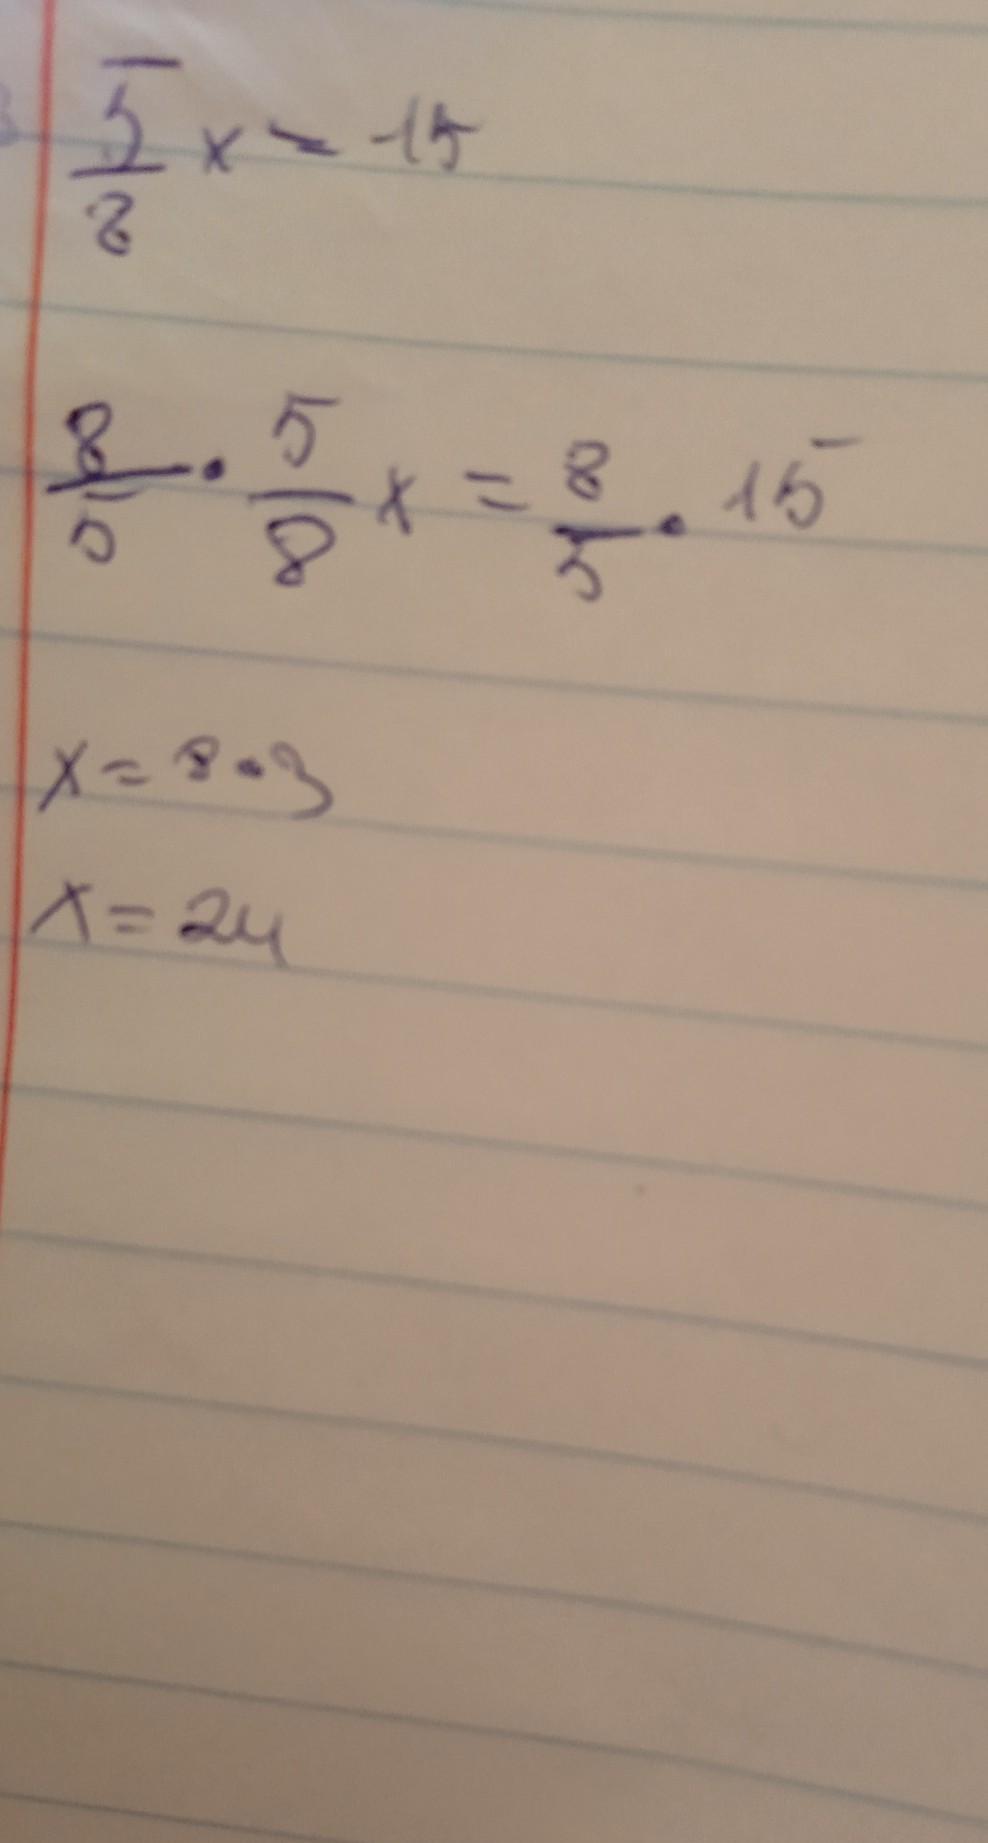 5/8 x = 15
8/5 · 5/8 x = 8/5 · 15
x = 8 · 3
x = 24